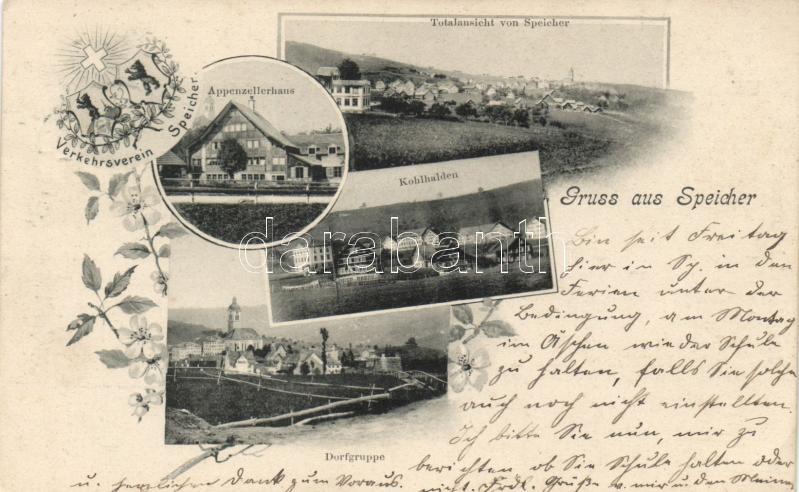 Totalansicht von Speicher
Appenzellerhaus
Verkehrsverein Speicher.
Kohlhalden
Gruss aus Speicher
Bin seit Freitag
hier in Sp. in den
Ferien unter der
Bedingung, am Montag
im wieder Schule
zu halten, falls Sie solche
auch noch nicht einstellten.
Ich bitte Sie nun, mir zu
berichten ob Sie Schule halten oder
nicht. Frdl. Grüße v. mir u. den Meinen
u. herzlichen Dank zum Voraus.
Dorfgruppe
darabanth